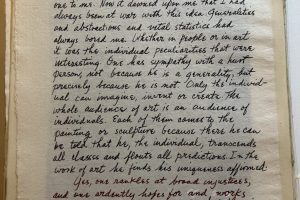 one to me. Now it dawned upon me that I had
always been at war with this idea. Generalities
and abstractions and vital statistics had
always bored me. Whether in people or in art
it was the individual peculiarities that were
interesting. One has sympathy with a hurt
person, not because he is a generality, but
precisely because he is not. Only the individ-
ual can imagine, invent or create. The
whole audience of art is an audience of
individuals. Each of them comes to the
painting or sculpture because there he can
be told that he, the individual, transcends
all classes and flouts all predictions. In the
work of art he finds his uniqueness affirmed.
Yes, one rankles at broad injustices,
and one ardently hopes for and works